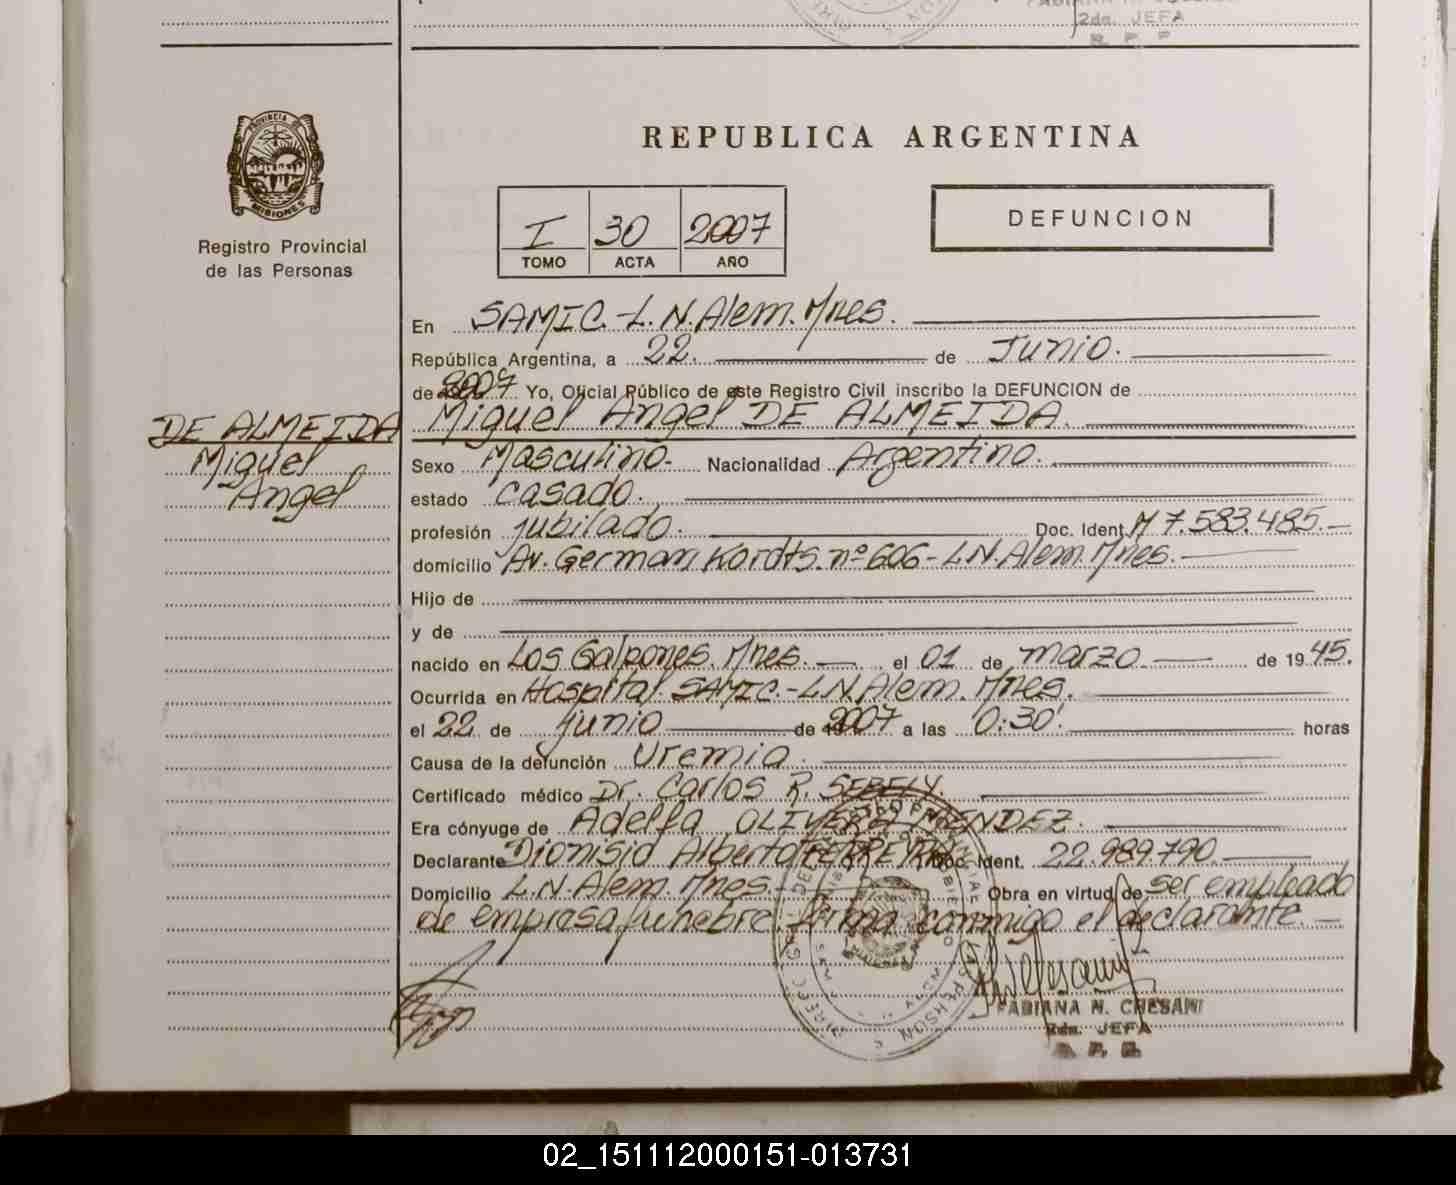 2da. JEFA
R. P. P.
PROVINCIA DE
MISIONES
Registro Provincial
de las Personas
REPUBLICA ARGENTINA
I 30 2007
TOMO ACTA AÑO
DEFUNCION
En SAMIC.-L.N.Alem.Mnes.
República Argentina, a 22. de Junio.
de 2007 Yo, Oficial Público de este Registro Civil inscribo la DEFUNCION de
Miguel Angel DE ALMEIDA.
DE ALMEIDA
Miguel
Angel
Sexo Masculino.- Nacionalidad Argentino.
estado casado.
profesión jubilado. Doc. Ident. M 7.583.485.-
domicilio Av. German Kordts.nº606-L.N.Alem.Mnes.-
Hijo de
y de
nacido en Los Galpones. Mnes.- el 01 de marzo de 1945.
Ocurrida en Hospital SAMIC.-L.N.Alem.Mnes.
el 22 de junio de 2007 a las 0:30'. horas
Causa de la defunción Uremia.
Certificado médico Dr. Carlos R. SEBELY.
Era cónyuge de Adelfa OLIVERA MENDEZ.
Declarante Dionisio Alberto FERREYRA Doc. Ident. 22.989.790.
Domicilio L.N.Alem.Mnes.- Obra en virtud de ser empleado
de empresa fúnebre.-firma conmigo el declarante.-
FABIANA N. CHESANI
2da. JEFA
R. P. P.
02_151112000151-013731